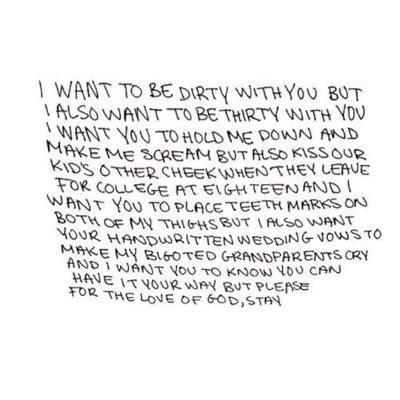 I WANT TO BE DIRTY WITH YOU BUT
I ALSO WANT TO BE THIRTY WITH YOU
I WANT YOU TO HOLD ME DOWN AND
MAKE ME SCREAM BUT ALSO KISS OUR
KID'S OTHER CHEEK WHEN THEY LEAVE
FOR COLLEGE AT EIGHTEEN AND I
WANT YOU TO PLACE TEETH MARKS ON
BOTH OF MY THIGHS BUT I ALSO WANT
YOUR HANDWRITTEN WEDDING VOWS TO
MAKE MY BIGOTED GRANDPARENTS CRY
AND I WANT YOU TO KNOW YOU CAN
HAVE IT YOUR WAY BUT PLEASE
FOR THE LOVE OF GOD, STAY